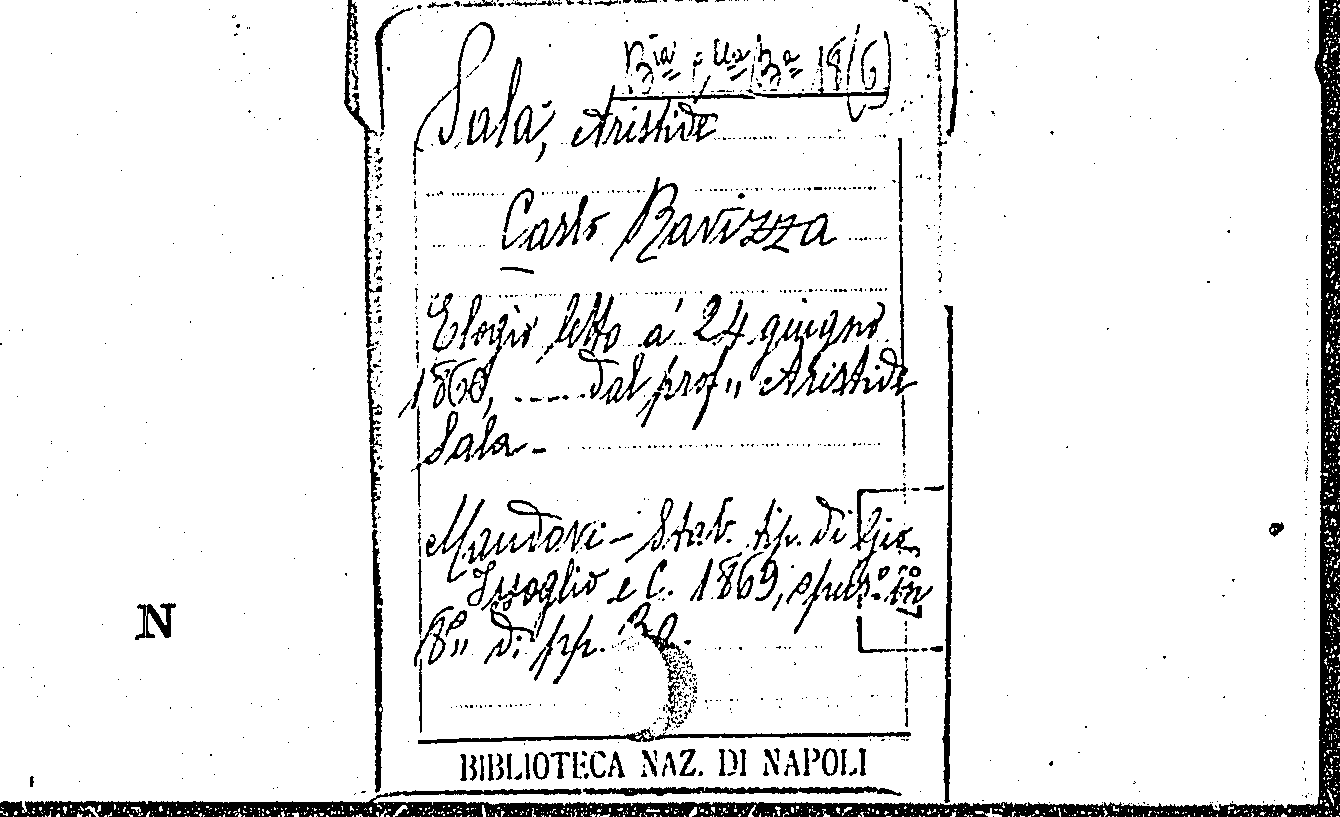 Sala, Aristide
Carlo Ravizza
Elogio letto a' 24 giugno
1868, ...... dal prof.,, Aristide
Sala -
Mondovì - Stab. tip. di Gio.
Issoglio e C. 1869, opus. in
8°,, di pp.
N
BIBLIOTECA NAZ. DI NAPOLI